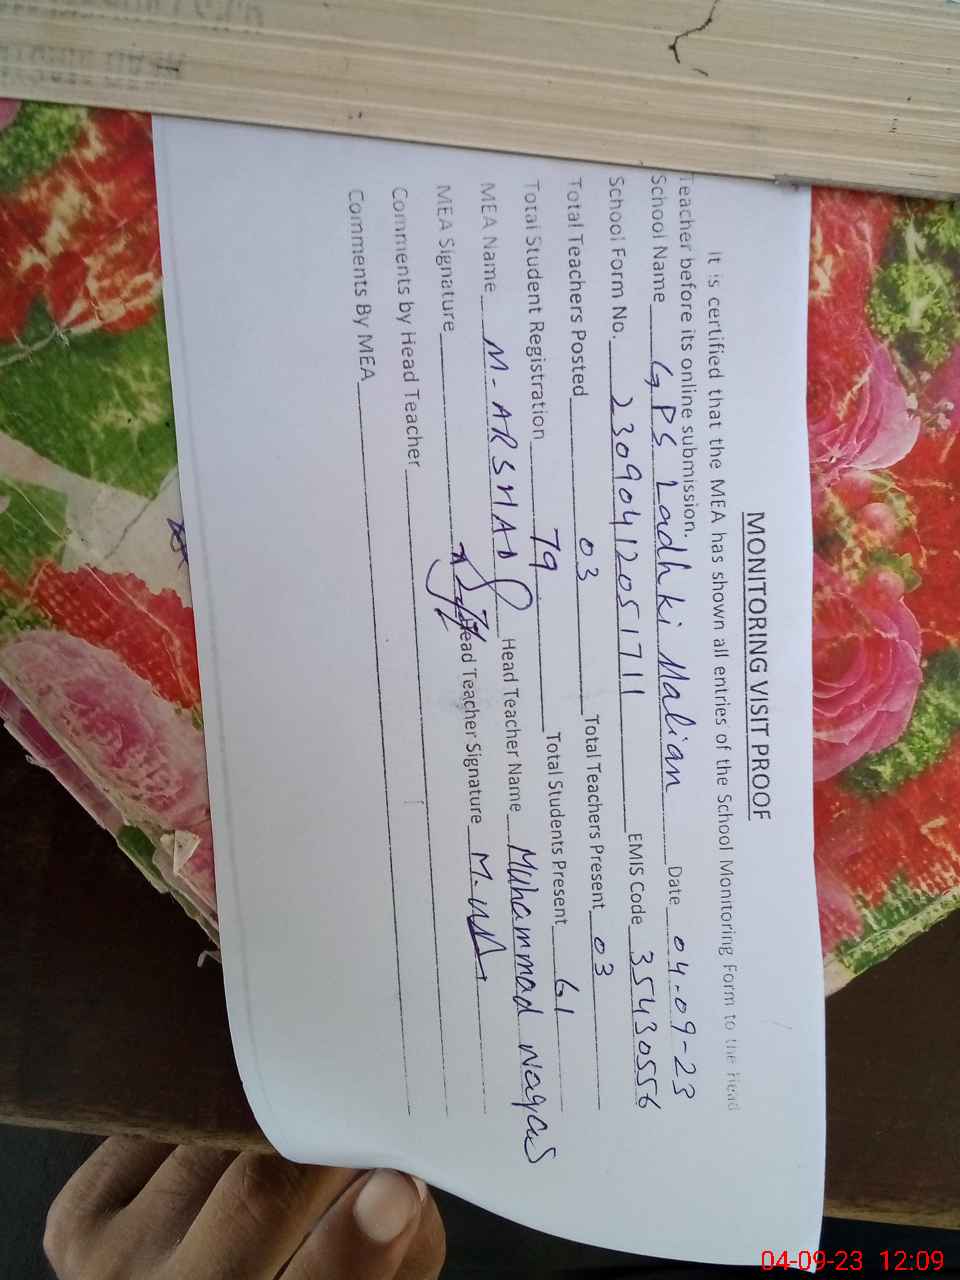 MONITORING VISIT PROOF
It is certified that the MEA has shown all entries of the School Monitoring Form to the Head
Teacher before its online submission.
School Name GPS Ladhki Malian Date 04-09-23
School Form No. 23090412051711 EMIS Code 35430556
Total Teachers Posted 03 Total Teachers Present 03
Total Student Registration 79 Total Students Present 61
MEA Name M-ARSHAD Head Teacher Name Muhammad Waqas
MEA Signature Head Teacher Signature
Comments by Head Teacher
Comments By MEA
04-09-23 12:09